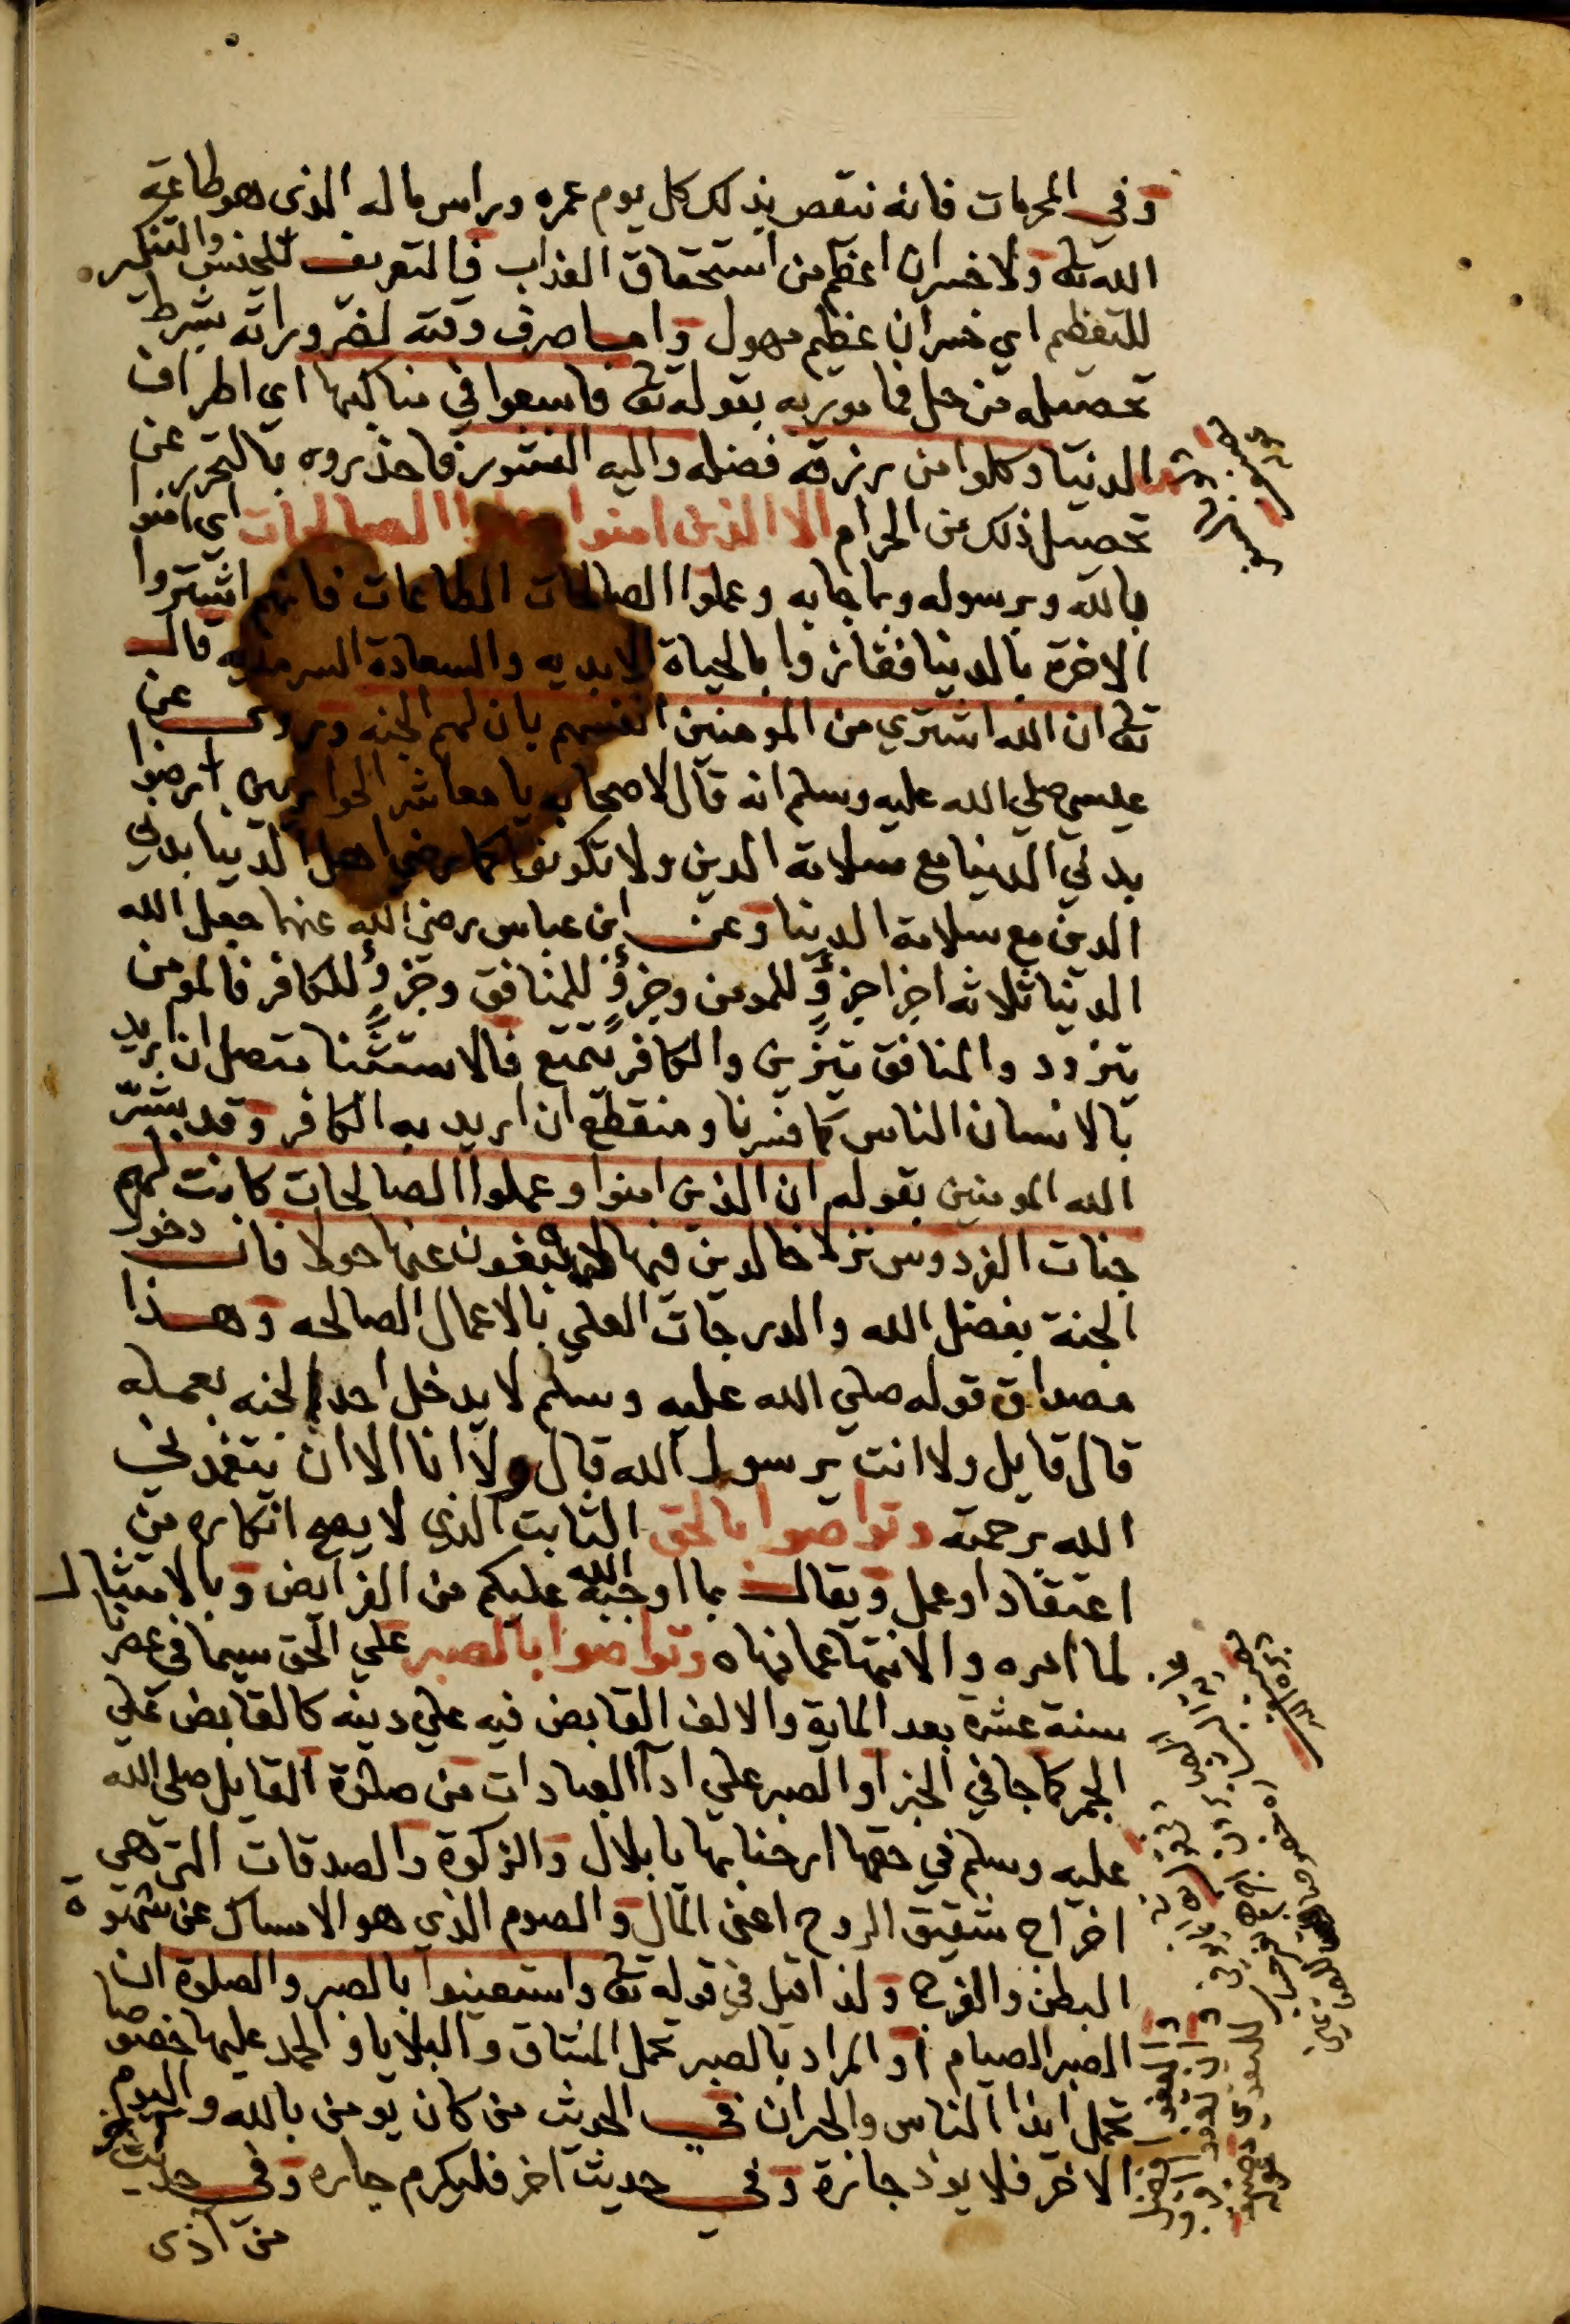 وفي المحرمات فانه ننقص بذلك كل يوم عمره وراس ماله الذى هو طاعة
الله تعا ولا خسران اعظم من استحقاق العذاب فالتعريف للجنس والتنكير
للتعظيم اي خسران عظيم مهول واما صرف وقته لضروراته بشرط
تحصيله من حل فمامور به بقوله تعا فاسعوا في مناكبها اي اطراف
الدنيا وكلوا من رزقه فضله واليه النشور فاحذروه بالتحرز عن
تحصيل ذلك من الحرام الا الذين امنوا وعملوا الصالحات اى امنوا
بالله وبرسوله وبما جا به وعملوا الصالحات الطاعات فانهم اشتروا
الاخرة بالدنيا ففازوا بالحياة الابديه والسعادة السرمديه قال
تعا ان الله اشتري من المومنين انفسهم بان لهم الجنه وروى عن
عيسي صلي الله عليه وسلم انه قال لاصحابه يا معاشر الحواريين ارضوا
بدني الدنيا مع سلامة الدين ولا تكونوا كما رضي اهل الدنيا بدني
الدين مع سلامة الدنيا وعن ابن عباس رضى الله عنهما جعل الله
الدنيا ثلاثه اجزا جزؤ للمومن وجزؤ للمنافق وجزؤ للكافر فالمومن
يتزود والمنافق يتزين والكافر يتمتع فالاستثنا متصل ان اريد
بالانسان الناس كما فسرنا ومنقطع ان اريد به الكافر وقد بشر
الله المومنين بقوله ان الذين امنوا وعملوا الصالحات كانت لهم
جنات الفردوس نزلا خالدين فيها لا يبغون عنها حولا فان دخول
الجنة بفضل الله والدرجات العلي بالاعمال الصالحه وهذا
مصداق قوله صلي الله عليه وسلم لا يدخل احد الجنه بعمله
قال قايل ولا انت يرسول الله قال ولا انا الا ان يتغمدني
الله برحمته وتواصوا بالحق الثابت الذي لا يصح انكاره من
اعتقاد او عمل ويقال بما اوجبه الله عليكم من الفرايض وبالامتثال
لما امره والانتها عما نهاه وتواصوا بالصبر علي الحق سيما في عصرنا
سنة عشره بعد الماية والالف القابض فيه علي دينه كالقابض علي
الجمر كما جا في الخبر او الصبر علي ادآ العبادات من صلوة القايل صلى الله
عليه وسلم في حقها ارحنا بها يا بلال والزكوة والصدقات التي هي
اخراج شقيق الروح اعنى المال والصوم الذي هو الامساك عن شهوة
البطن والفرج ولذا قيل في قوله تعا واستعينوا بالصبر والصلوة ان
الصبر الصيام او المراد بالصبر تحمل المشاق والبلايا والحمد عليها خصوصا
تحمل ايذا الناس والجيران في الحديث من كان يومن بالله واليوم
الاخر فلا يوذ جاره وفي حديث اخر فليكرم جاره وفي حديث اخر
من اذى